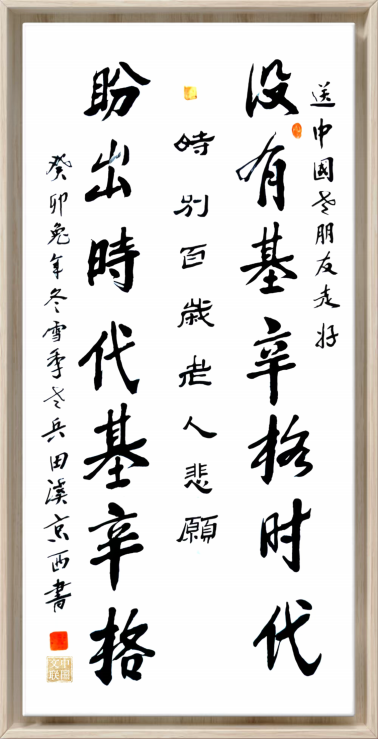 送中國老朋友走好
没有基辛格时代
時别百歲老人悲願
盼出時代基辛格
癸卯兔年冬雪季老兵田溪京西書
中国文联